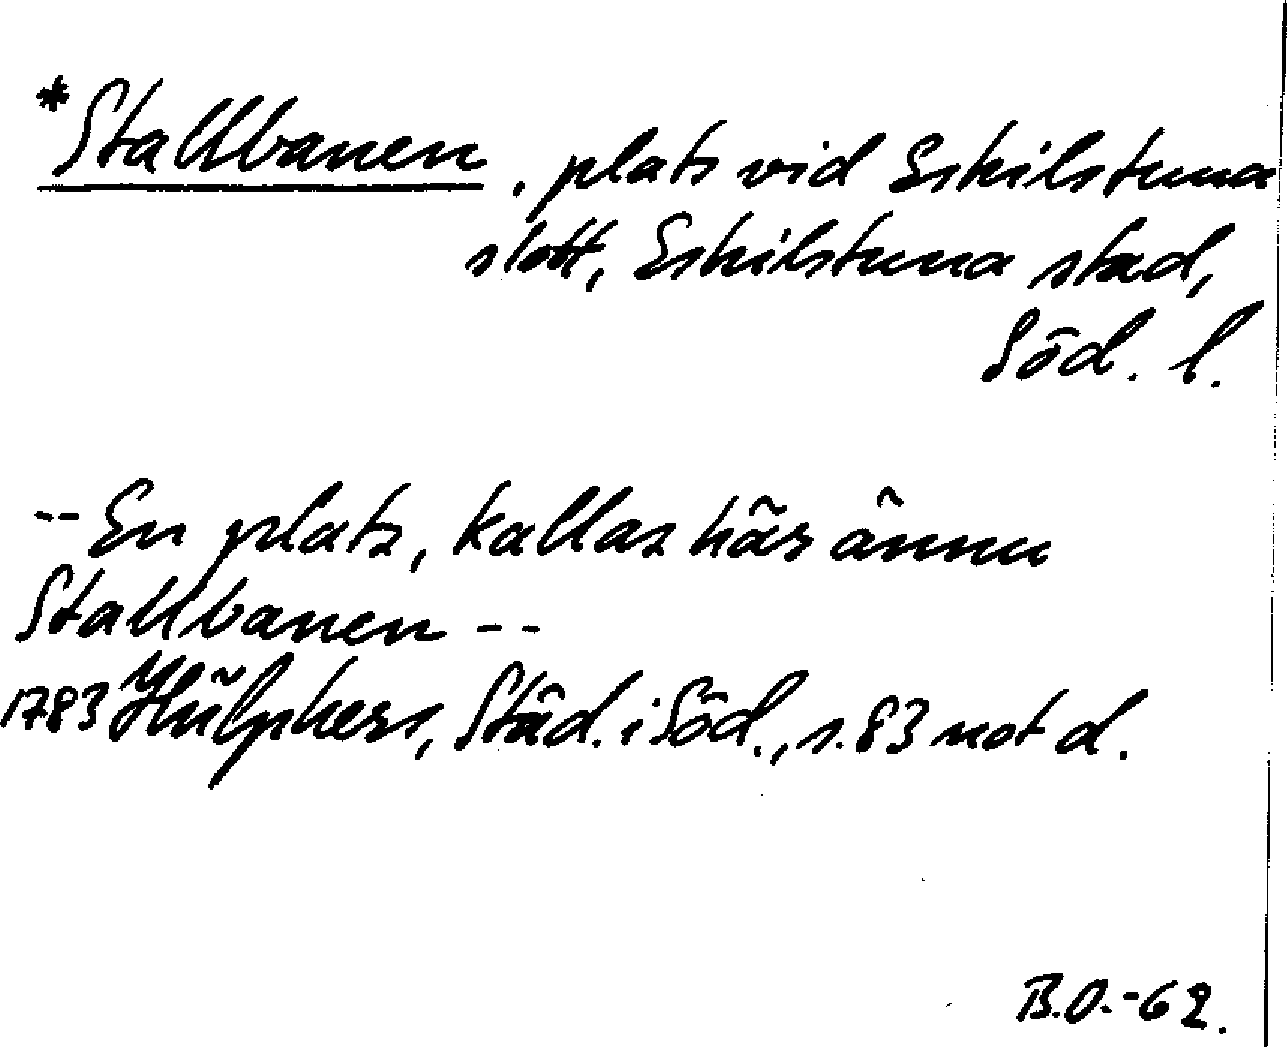 *Stallbanen, plats vid Eskilstuna
slott, Eskilstuna stad,
Söd. l.
-- En plats, kallas här ännu
Stallbanen --
1783 Hülphers, Städ. i Söd., s. 83 not d.
B.O.-62.